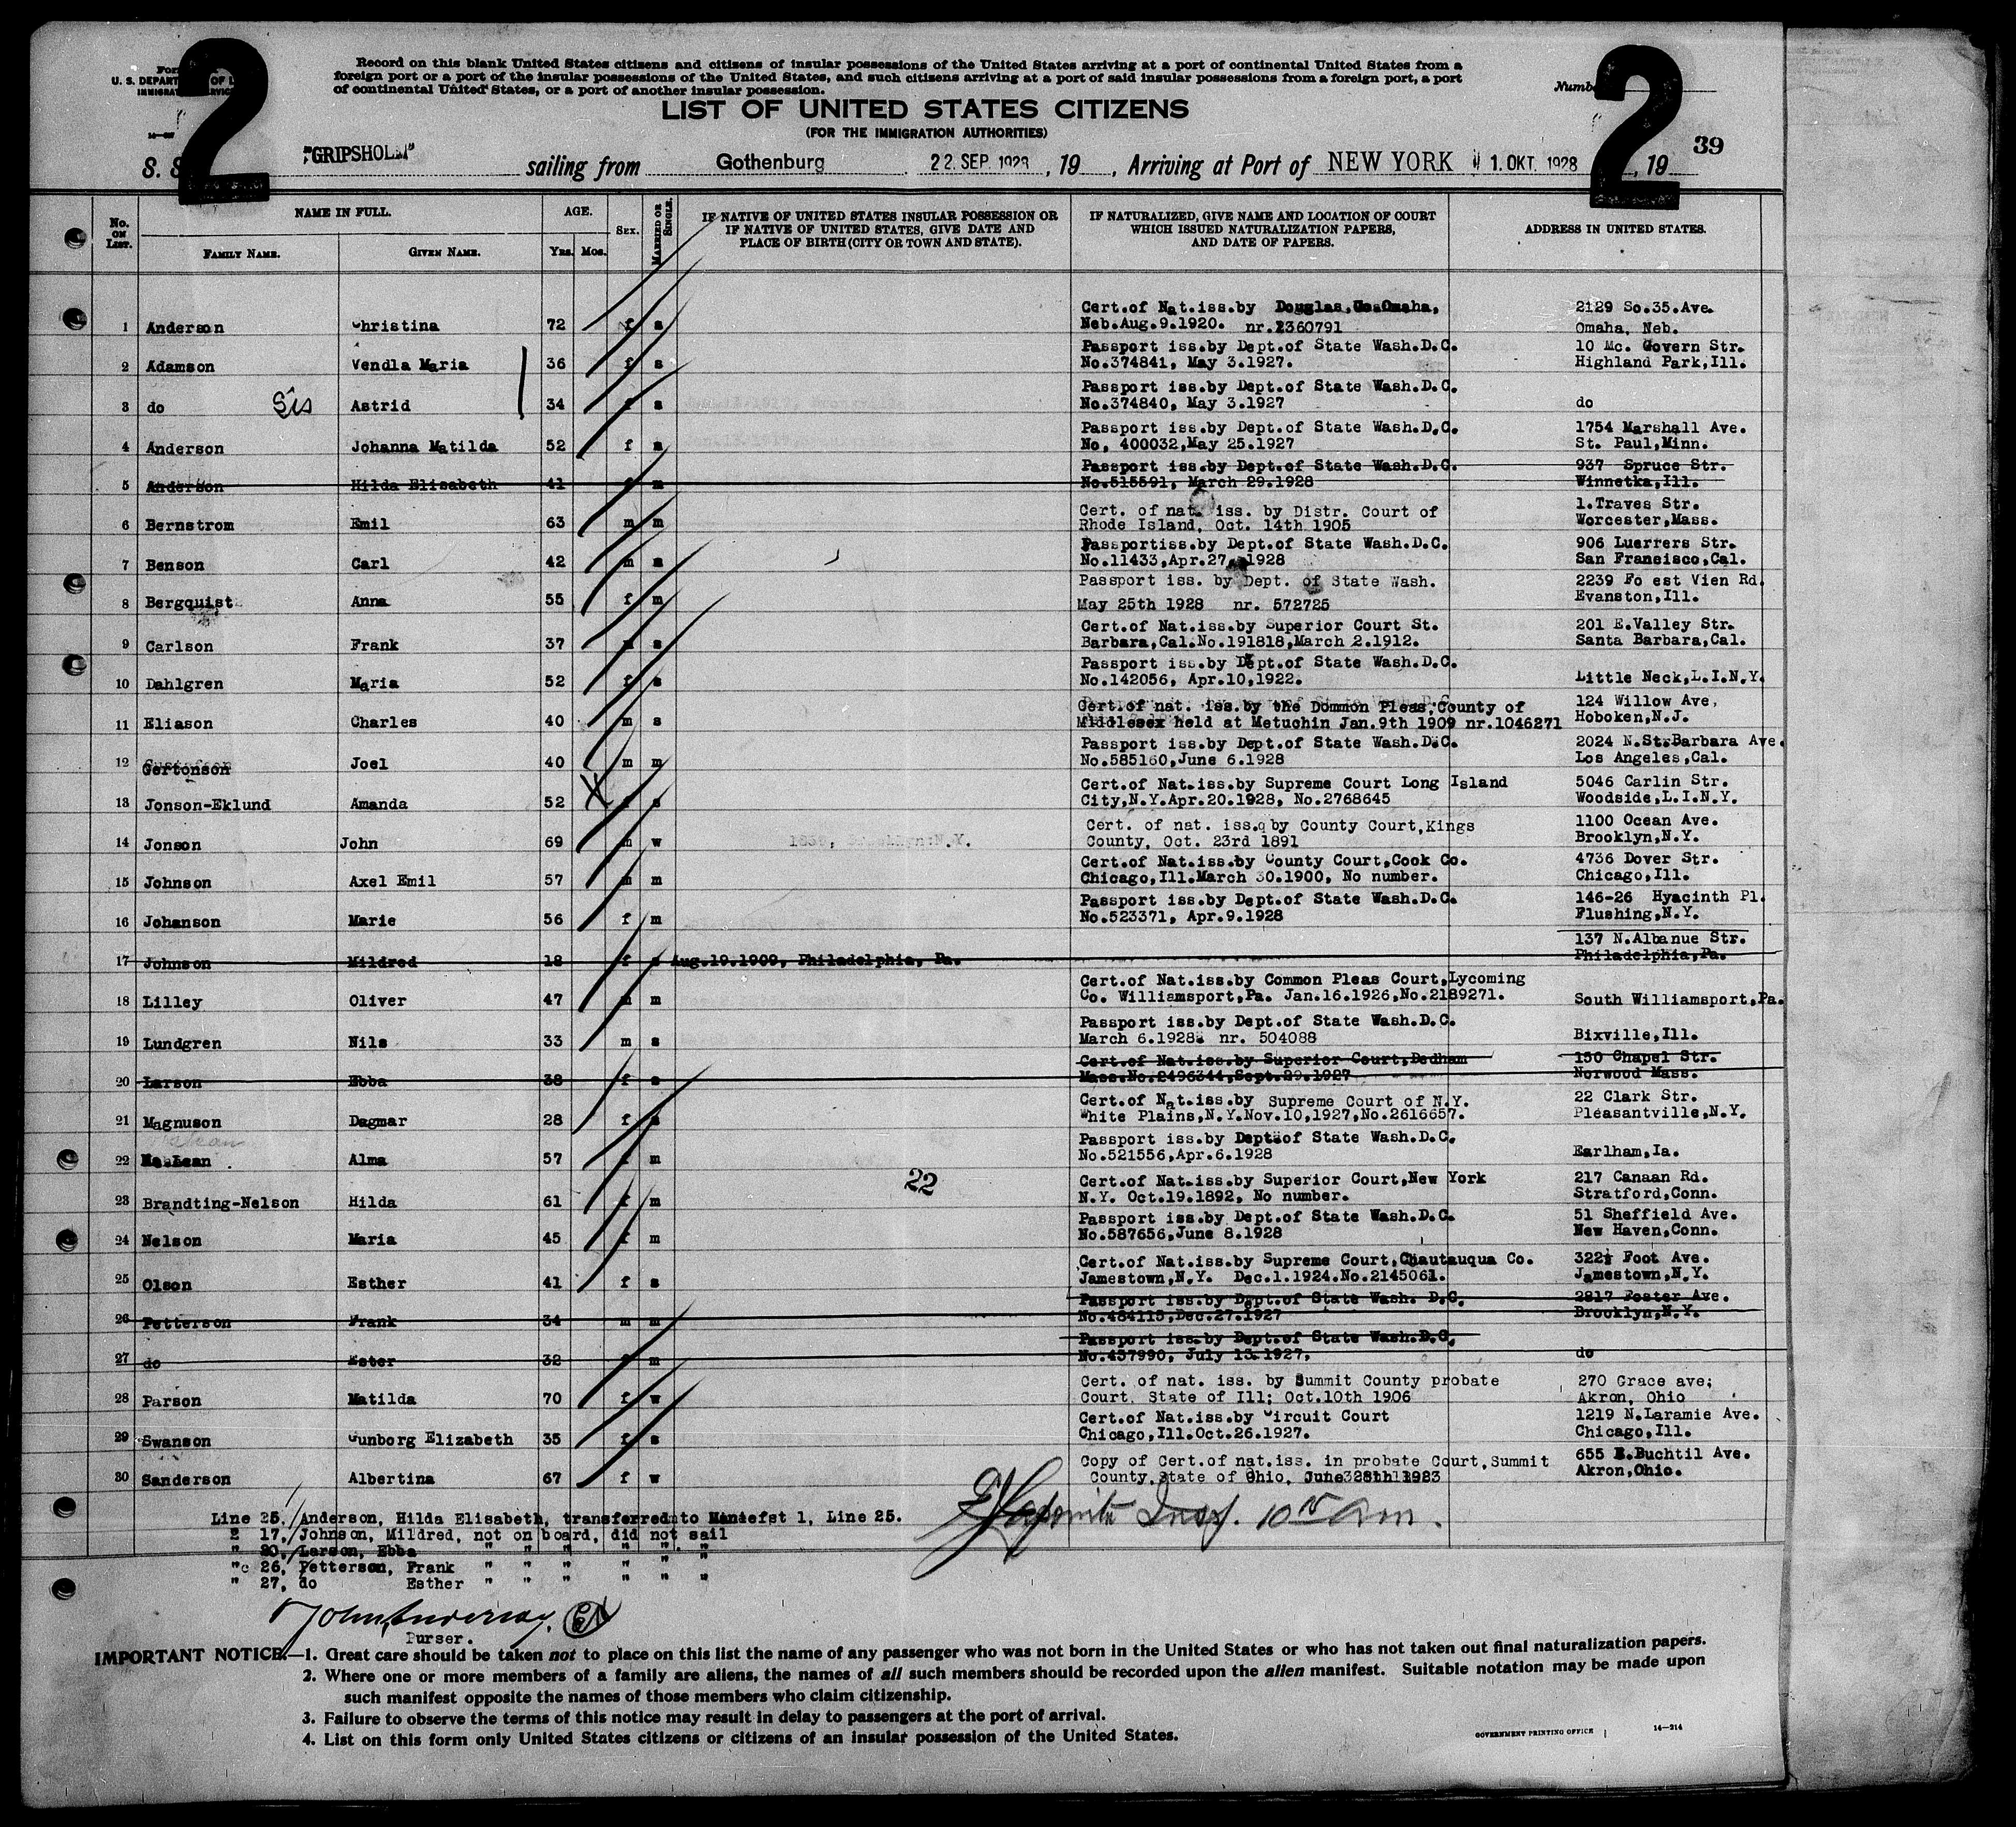 Record on this blank United States citizens and citizens of insular possessions of the United States arriving at a port of continental United States from a
foreign port or a port of the insular possessions of the United States, and such citizens arriving at a port of said insular possessions from a foreign port, a port
of continental United States, or a port of another insular possession.
2
2
U. S. DEPART OF L
IMMIGRA SERVICE
LIST OF UNITED STATES CITIZENS
(FOR THE IMMIGRATION AUTHORITIES)
39
S. S "GRIPSHOLM" sailing from Gothenburg 22. SEP. 1928, 19 , Arriving at Port of NEW YORK 1. OKT. 1928, 19
No. ON LIST. NAME IN FULL. AGE. SEX. MARRIED OR SINGLE. IF NATIVE OF UNITED STATES INSULAR POSSESSION OR IF NATIVE OF UNITED STATES, GIVE DATE AND PLACE OF BIRTH (CITY OR TOWN AND STATE). IF NATURALIZED, GIVE NAME AND LOCATION OF COURT WHICH ISSUED NATURALIZATION PAPERS, AND DATE OF PAPERS. ADDRESS IN UNITED STATES.
FAMILY NAME. GIVEN NAME. Yrs. Mos.
Cert.of Nat.iss.by Douglas,Co.Omaha, 2129 So.35.Ave.
1 Anderson Christina 72 f s Neb.Aug.9.1920. nr.2360791 Omaha, Neb.
Passport iss.by Dept.of State Wash.D.C. 10 Mc. Govern Str.
2 Adamson Vendla Maria 36 f s No.374841, May 3.1927. Highland Park,Ill.
Passport iss.by Dept.of State Wash.D.C.
3 do Sis Astrid 34 f s No.374840, May 3.1927 do
Passport iss.by Dept.of State Wash.D.C. 1754 Marshall Ave.
4 Anderson Johanna Matilda 52 f s No. 400032,May 25.1927 St. Paul,Minn.
Passport iss.by Dept.of State Wash.D.C. 937 Spruce Str.
5 Anderson Hilda Elisabeth 41 f m No.515591, March 29.1928 Winnetka,Ill.
Cert. of nat. iss. by Distr. Court of 1.Traves Str.
6 Bernstrom Emil 63 m m Rhode Island, Oct. 14th 1905 Worcester,Mass.
Passportiss.by Dept.of State Wash.D.C. 906 Luerrers Str.
7 Benson Carl 42 m s No.11433,Apr.27. 1928 San Francisco,Cal.
Passport iss. by Dept. of State Wash. 2239 Fo est Vien Rd.
8 Bergquist Anna 55 f m May 25th 1928 nr. 572725 Evanston,Ill.
Cert.of Nat.iss.by Superior Court St. 201 E.Valley Str.
9 Carlson Frank 37 m s Barbara,Cal.No.191818,March 2.1912. Santa Barbara,Cal.
Passport iss.by Dept.of State Wash.D.C.
10 Dahlgren Maria 52 f s No.142056, Apr.10,1922. Little Neck,L.I.N.Y.
Cert.of nat. iss.by the Dommon Pleas,County of 124 Willow Ave,
11 Eliason Charles 40 m s Middlesex held at Metuchin Jan.9th 1909 nr.1046271 Hoboken,N.J.
Passport iss.by Dept.of State Wash.D.C. 2024 N.St.Barbara Ave.
12 Gertonson Joel 40 m m No.585160,June 6.1928 Los Angeles,Cal.
Cert.of Nat.iss.by Supreme Court Long Island 5046 Carlin Str.
13 Jonson-Eklund Amanda 52 f s City,N.Y.Apr.20.1928, No.2768645 Woodside,L.I.N.Y.
Cert. of nat. iss.q by County Court,Kings 1100 Ocean Ave.
14 Jonson John 69 m w County, Oct. 23rd 1891 Brooklyn,N.Y.
Cert.of Nat.iss.by County Court,Cook Co. 4736 Dover Str.
15 Johnson Axel Emil 57 m m Chicago,Ill.March 30.1900, No number. Chicago,Ill.
Passport iss.by Dept.of State Wash.D.C. 146-26 Hyacinth Pl.
16 Johanson Marie 56 f m No.523371, Apr.9.1928 Flushing,N.Y.
137 N.Albanue Str.
17 Johnson Mildred 18 f s Aug.19.1909, Philadelphia, Pa. Philadelphia,Pa.
Cert.of Nat.iss.by Common Pleas Court,Lycoming
18 Lilley Oliver 47 m m Co. Williamsport,Pa. Jan.16.1926,No.2189271. South Williamsport,Pa.
Passport iss.by Dept.of State Wash.D.C.
19 Lundgren Nils 33 m s March 6.1928. nr. 504088 Bixville,Ill.
Cert.of Nat.iss.by Superior Court,Dedham 150 Chapel Str.
20 Larson Ebba 38 f s Mass.No.2496344,Sept.29.1927 Norwood Mass.
Cert.of Nat.iss.by Supreme Court of N.Y. 22 Clark Str.
21 Magnuson Dagmar 28 f s White Plains,N.Y.Nov.10,1927,No.2616657. Pleasantville,N.Y.
Passport iss.by Dept.of State Wash.D.C.
22 MacLean Alma 57 f m No.521556,Apr.6.1928 Earlham,Ia.
22
Cert.of Nat.iss.by Superior Court,New York 217 Canaan Rd.
23 Brandting-Nelson Hilda 61 f m N.Y. Oct.19.1892, No number. Stratford,Conn.
Passport iss.by Dept.of State Wash.D.C. 51 Sheffield Ave.
24 Nelson Maria 45 f m No.587656,June 8.1928 New Haven,Conn.
Cert.of Nat.iss.by Supreme Court,Chautauqua Co. 322½ Foot Ave.
25 Olson Esther 41 f s Jamestown,N.Y. Dec.1.1924.No.2145061. Jamestown,N.Y.
Passport iss.by Dept.of State Wash. D.C. 2817 Foster Ave.
26 Petterson Frank 34 m m No.484115,Dec.27.1927 Brooklyn,N.Y.
Passport iss.by Dept.of State Wash.D.C.
27 do Ester 32 f m No.437990, July 13.1927. do
Cert. of nat. iss. by Summit County probate 270 Grace ave;
28 Parson Matilda 70 f w Court, State of Ill; Oct.10th 1906 Akron, Ohio
Cert.of Nat.iss.by Circuit Court 1219 N.Laramie Ave.
29 Swanson Gunborg Elizabeth 35 f s Chicago,Ill.Oct.26.1927. Chicago,Ill.
Copy of Cert.of nat.iss. in probate Court,Summit 655 E.Buchtil Ave.
30 Sanderson Albertina 67 f w County,State of Ohio, Akron,Ohio.
Line 25, Anderson, Hilda Elisabeth, transferred to Manifest 1, Line 25.
17, Johnson, Mildred, not on board, did not sail
" 20, Larson, Ebba " " " " " "
" 26, Petterson, Frank " " " " " "
" 27, do Esther " " " " " "
Insp. 10 15 am.
John Anderson
Purser.
IMPORTANT NOTICE.—1. Great care should be taken not to place on this list the name of any passenger who was not born in the United States or who has not taken out final naturalization papers.
2. Where one or more members of a family are aliens, the names of all such members should be recorded upon the alien manifest. Suitable notation may be made upon
such manifest opposite the names of those members who claim citizenship.
3. Failure to observe the terms of this notice may result in delay to passengers at the port of arrival.
4. List on this form only United States citizens or citizens of an insular possession of the United States.
GOVERNMENT PRINTING OFFICE 14—214